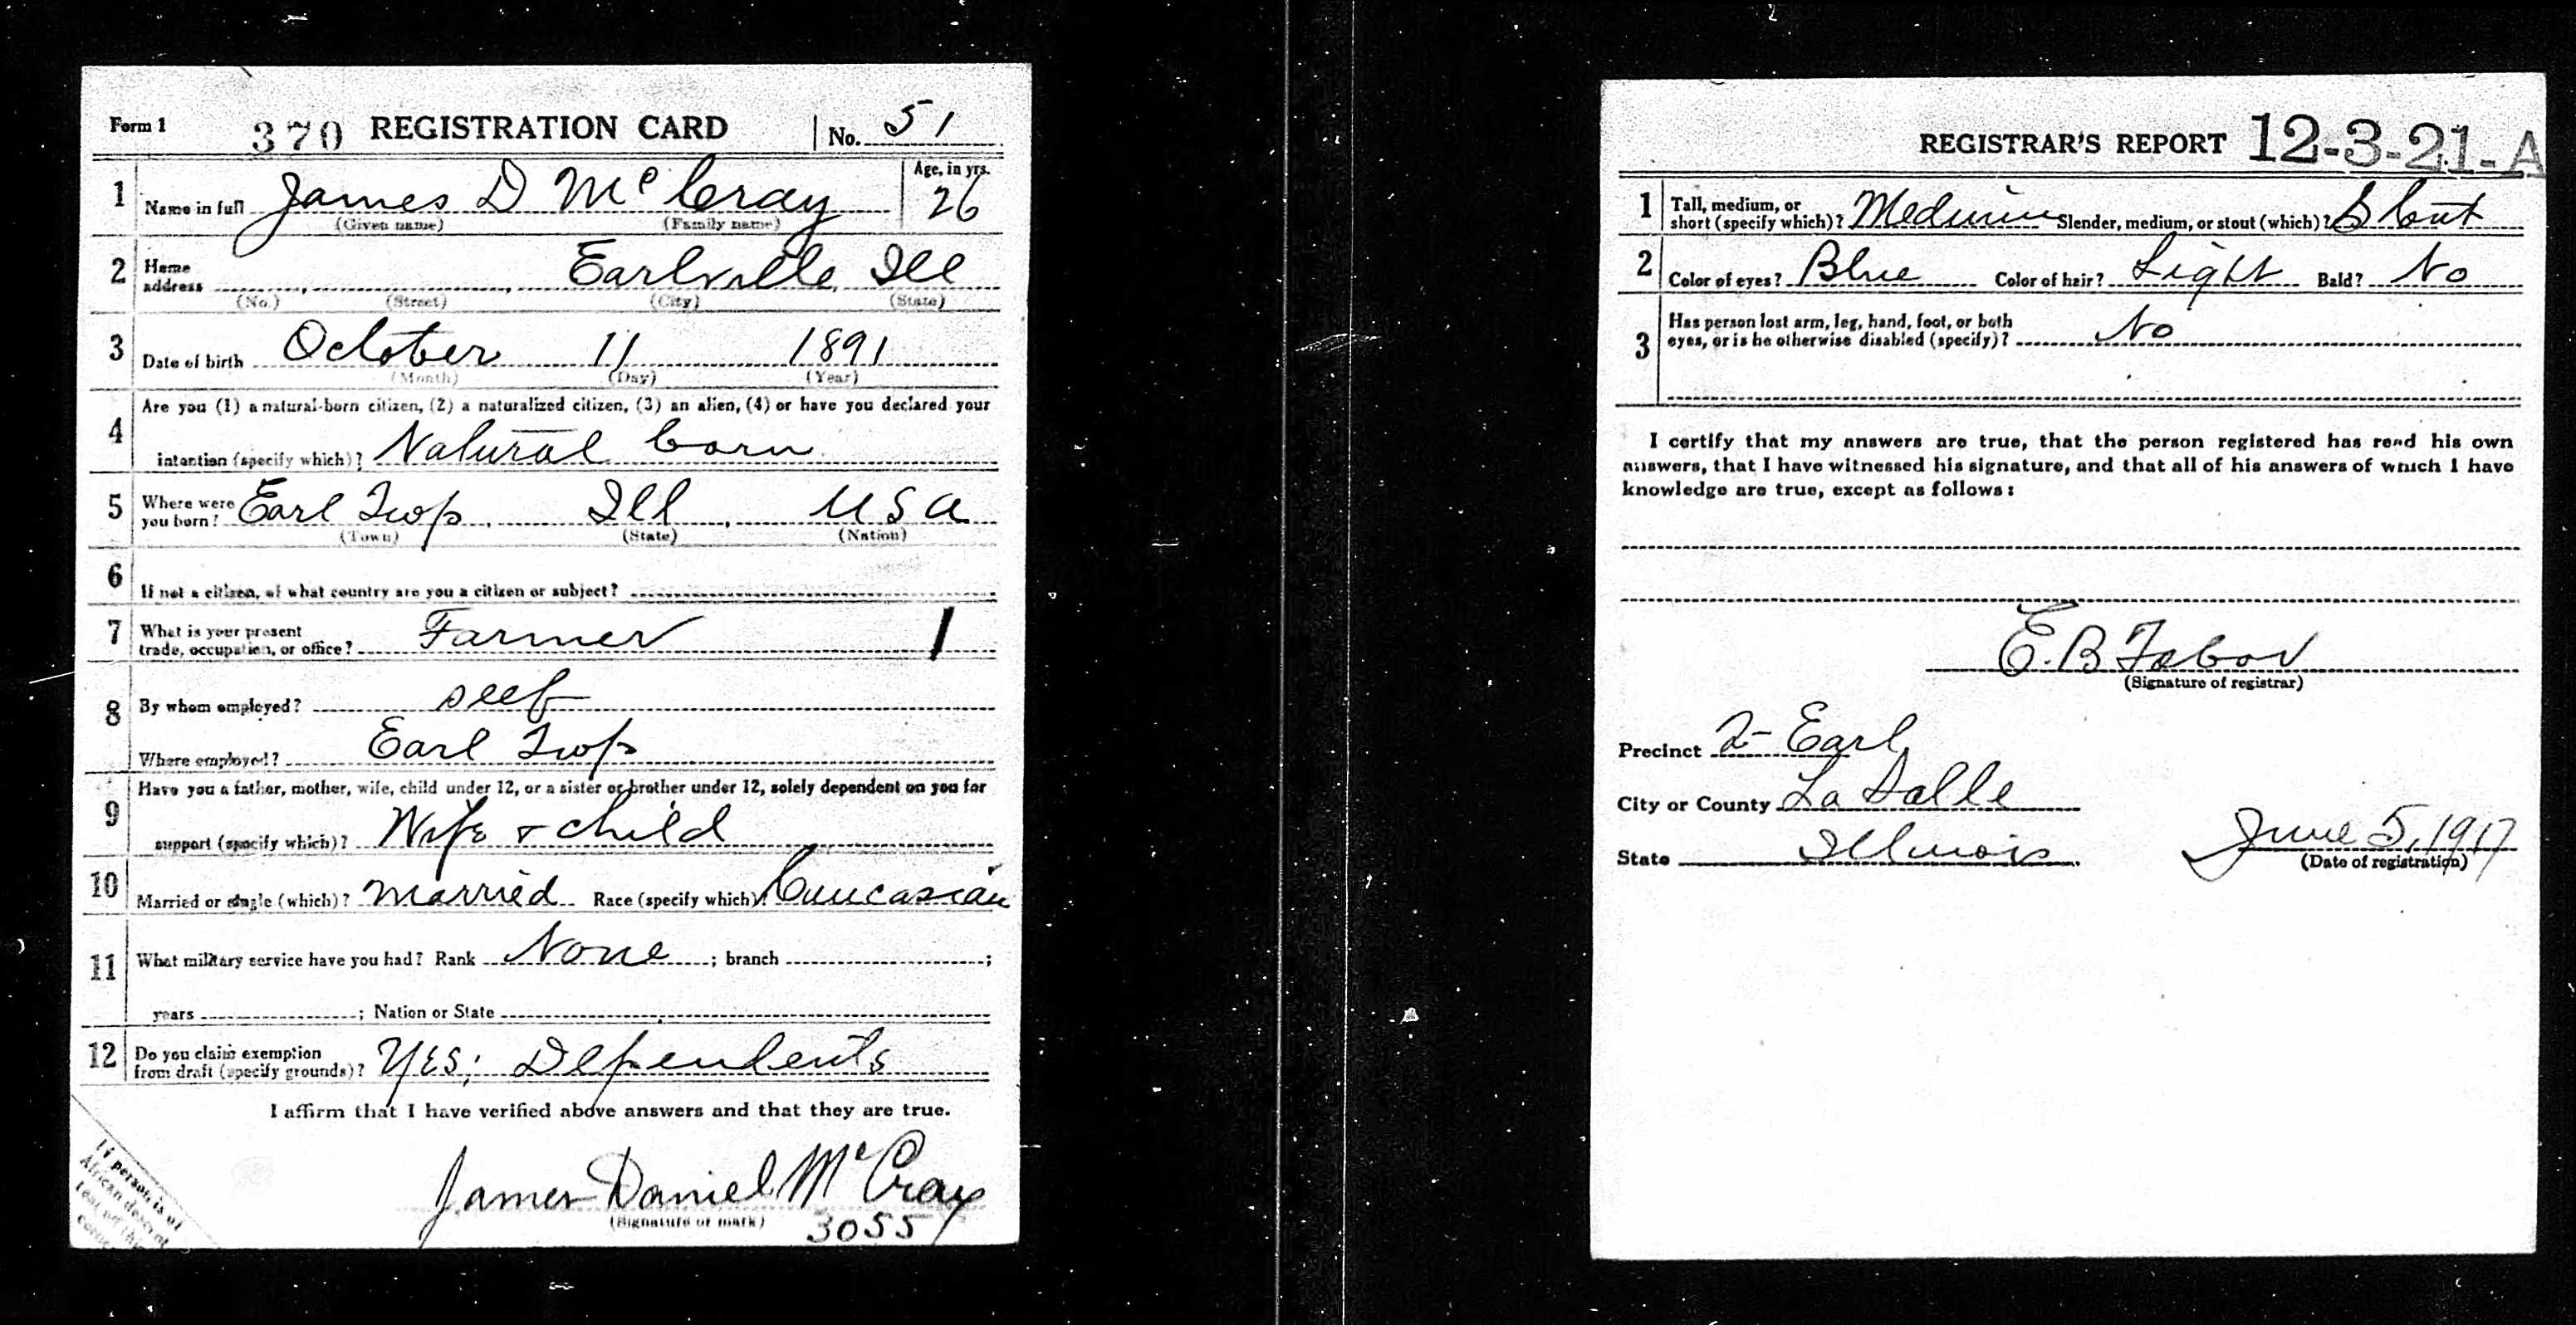 Form 1 370 REGISTRATION CARD No. 51
1 Name in full James D McCray Age, in yrs. 26
(Given name) (Family name)
2 Home address Earlville, Ill
(No.) (Street) (City) (State)
3 Date of birth October 11 1891
(Month) (Day) (Year)
4 Are you (1) a natural-born citizen, (2) a naturalized citizen, (3) an alien, (4) or have you declared your
intention (specify which)? Natural born
5 Where were you born? Earl Twp, Ill, USA
(Town) (State) (Nation)
6 If not a citizen, of what country are you a citizen or subject?
7 What is your present
trade, occupation, or office? Farmer 1
8 By whom employed? self
Where employed? Earl Twp
9 Have you a father, mother, wife, child under 12, or a sister or brother under 12, solely dependent on you for
support (specify which)? Wife + child
10 Married or single (which)? Married Race (specify which)? Caucasian
11 What military service have you had? Rank None ; branch ;
years ; Nation or State
12 Do you claim exemption
from draft (specify grounds)? Yes; Dependents
I affirm that I have verified above answers and that they are true.
James Daniel McCray
(Signature or mark) 3055
If person is of
African descent
tear off this
corner
REGISTRAR'S REPORT 12-3-21-A
1 Tall, medium, or
short (specify which)? Medium Slender, medium, or stout (which)? Stout
2 Color of eyes? Blue Color of hair? Light Bald? No
3 Has person lost arm, leg, hand, foot, or both
eyes, or is he otherwise disabled (specify)? No
I certify that my answers are true, that the person registered has read his own
answers, that I have witnessed his signature, and that all of his answers of which I have
knowledge are true, except as follows:
E.B Tabor
(Signature of registrar)
Precinct 2- Earl
City or County La Salle
State Illinois June 5, 1917
(Date of registration)